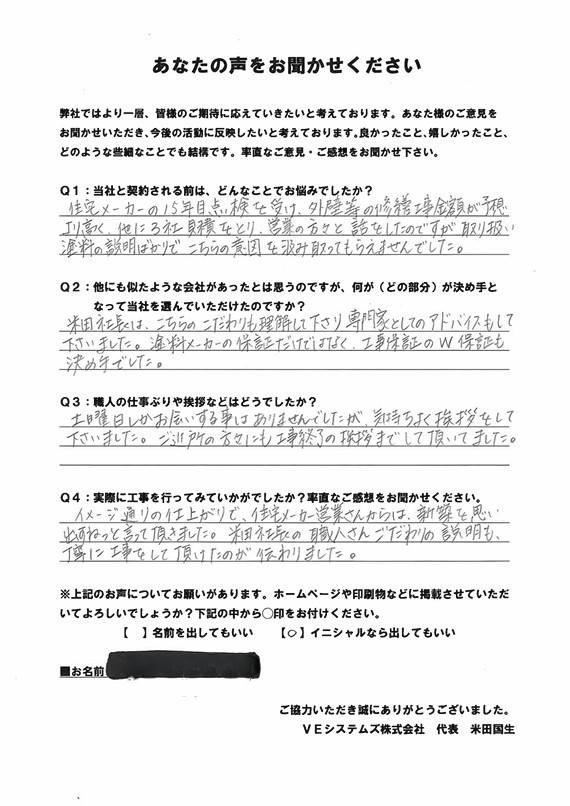 あなたの声をお聞かせください
弊社ではより一層、皆様のご期待に応えていきたいと考えております。あなた様のご意見を
お聞かせいただき、今後の活動に反映したいと考えております。良かったこと、嬉しかったこと、
どのような些細なことでも結構です。率直なご意見・ご感想をお聞かせ下さい。
Q1：当社と契約される前は、どんなことでお悩みでしたか？
住宅メーカーの15年目点検を受け、外壁等の修繕工事金額が予想
より高く、他に3社見積をとり、営業の方々と話をしたのですが取り扱い
塗料の説明ばかりでこちらの意図を汲み取ってもらえませんでした。
Q2：他にも似たような会社があったとは思うのですが、何が（どの部分）が決め手と
なって当社を選んでいただけたのですか？
米田社長は、こちらのこだわりも理解して下さり専門家としてのアドバイスもして
下さいました。塗料メーカーの保証だけではなく、工事保証のW保証も
決め手でした。
Q3：職人の仕事ぶりや挨拶などはどうでしたか？
土曜日しかお会いする事はありませんでしたが、気持ちよく挨拶をして
下さいました。ご近所の方々にも工事終了の挨拶までして頂いてました。
Q4：実際に工事を行ってみていかがでしたか？率直なご感想をお聞かせください。
イメージ通りの仕上がりで、住宅メーカー営業さんからは、新築を思い
出すねっと言って頂きました。米田社長の職人さんこだわりの説明も、
丁寧に工事をして頂けたのが伝わりました。
※上記のお声についてお願いがあります。ホームページや印刷物などに掲載させていただ
いてよろしいでしょうか？下記の中から○印をお付けください。
【　】名前を出してもいい　【○】イニシャルなら出してもいい
■お名前
ご協力いただき誠にありがとうございました。
VEシステムズ株式会社　代表　米田国生